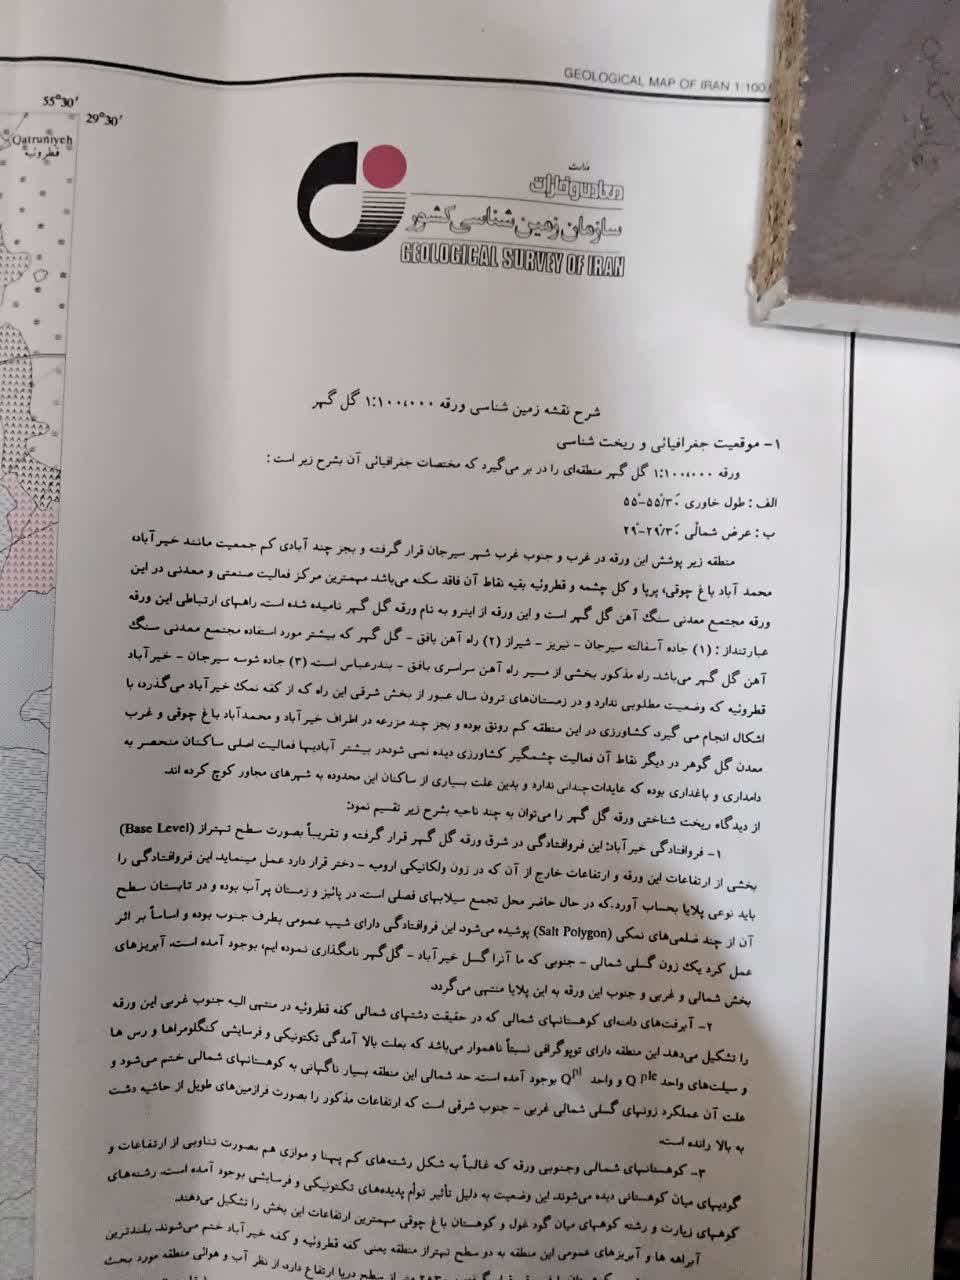 GEOLOGICAL MAP OF IRAN 1:100,
55°30′
29°30′
Qatruniyeh
قطروئیه
وزارت
معادن و فلزات
سازمان زمین شناسی کشور
GEOLOGICAL SURVEY OF IRAN
شرح نقشه زمین شناسی ورقه ۱:۱۰۰،۰۰۰ گل گهر
۱- موقعیت جغرافیائی و ریخت شناسی
ورقه ۱:۱۰۰،۰۰۰ گل گهر منطقه‌ای را در بر می‌گیرد که مختصات جغرافیائی آن بشرح زیر است :
الف : طول خاوری ۵۵°-۵۵°/۳۰′
ب : عرض شمالی ۲۹°-۲۹°/۳۰′
منطقه زیر پوشش این ورقه در غرب و جنوب غرب شهر سیرجان قرار گرفته و بجز چند آبادی کم جمعیت مانند خیرآباد،
محمد آباد باغ چوقی، پرپا و کل چشمه و قطروئیه بقیه نقاط آن فاقد سکنه می‌باشد. مهمترین مرکز فعالیت صنعتی و معدنی در این
ورقه مجتمع معدنی سنگ آهن گل گهر است و این ورقه از اینرو به نام ورقه گل گهر نامیده شده است. راههای ارتباطی این ورقه
عبارتنداز : (۱) جاده آسفالته سیرجان - نیریز - شیراز (۲) راه آهن بافق - گل گهر که بیشتر مورد استفاده مجتمع معدنی سنگ
آهن گل گهر می‌باشد. راه مذکور بخشی از مسیر راه آهن سراسری بافق - بندرعباس است. (۳) جاده شوسه سیرجان - خیرآباد
قطروئیه که وضعیت مطلوبی ندارد و در زمستان‌های ترون سال عبور از بخش شرقی این راه که از کفه نمک خیرآباد می‌گذرد، با
اشکال انجام می گیرد. کشاورزی در این منطقه کم رونق بوده و بجز چند مزرعه در اطراف خیرآباد و محمدآباد باغ چوقی و غرب
معدن گل گوهر در دیگر نقاط آن فعالیت چشمگیر کشاورزی دیده نمی شود.در بیشتر آبادیها فعالیت اصلی ساکنان منحصر به
دامداری و باغداری بوده که عایدات چندانی ندارد و بدین علت بسیاری از ساکنان این محدوده به شهرهای مجاور کوچ کرده اند.
از دیدگاه ریخت شناختی ورقه گل گهر را می‌توان به چند ناحیه بشرح زیر تقسیم نمود:
۱- فروافتادگی خیرآباد: این فروافتادگی در شرق ورقه گل گهر قرار گرفته و تقریباً بصورت سطح تهتراز (Base Level)
بخشی از ارتفاعات این ورقه و ارتفاعات خارج از آن که در زون ولکانیکی ارومیه - دختر قرار دارد عمل مینماید. این فروافتادگی را
باید نوعی پلایا بحساب آورد.که در حال حاضر محل تجمع سیلابهای فصلی است. در پائیز و زمستان پرآب بوده و در تابستان سطح
آن از چند ضلعی‌های نمکی (Salt Polygon) پوشیده می‌شود. این فروافتادگی دارای شیب عمومی بطرف جنوب بوده و اساساً بر اثر
عمل کرد یک زون گسلی شمالی - جنوبی که ما آنرا گسل خیرآباد - گل‌گهر نامگذاری نموده ایم، بوجود آمده است. آبریزهای
بخش شمالی و غربی و جنوب این ورقه به این پلایا منتهی می‌گردد.
۲- آبرفت‌های دامنه‌ای کوهستانهای شمالی که در حقیقت دشتهای شمالی کفه قطروئیه در منتهی الیه جنوب غربی این ورقه
را تشکیل می‌دهد. این منطقه دارای توپوگرافی نسبتاً ناهموار می‌باشد که بعلت بالا آمدگی تکتونیکی و فرسایشی کنگلومراها و رس ها
و سیلت‌های واحد Q plc و واحد Qpl بوجود آمده است. حد شمالی این منطقه بسیار ناگهانی به کوهستانهای شمالی ختم می‌شود و
علت آن عملکرد زونهای گسلی شمالی غربی - جنوب شرقی است که ارتفاعات مذکور را بصورت فرازمین‌های طویل از حاشیه دشت
به بالا رانده است.
۳- کوهستانهای شمالی وجنوبی ورقه که غالباً به شکل رشته‌های کم پهنا و موازی هم بصورت تناوبی از ارتفاعات و
گودیهای میان کوهستانی دیده می‌شوند. این وضعیت به دلیل تأثیر توأم پدیده‌های تکتونیکی و فرسایشی بوجود آمده است. رشته‌های
کوههای زیارت و رشته کوههای میان گود غول و کوهستان باغ چوقی مهمترین ارتفاعات این بخش را تشکیل می‌دهند.
آبراهه ها و آبریزهای عمومی این منطقه به دو سطح تهتراز منطقه یعنی کفه قطروئیه و کفه خیرآباد ختم می‌شوند. بلندترین
سطح دریا ارتفاع دارد. از نظر آب و هوائی منطقه مورد بحث